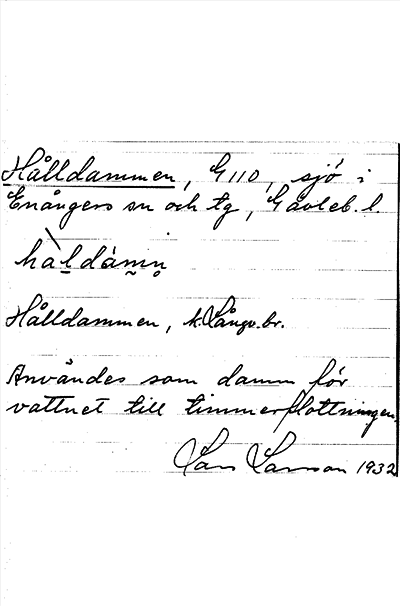 Hålldammen, G110, sjö i
Enångers sn och tg, Gävleb. l.
hàldámn
Hålldammen, k. Långv. br.
Användes som damm för
vattnet till timmerflottningen.
Lars Larsson 1932